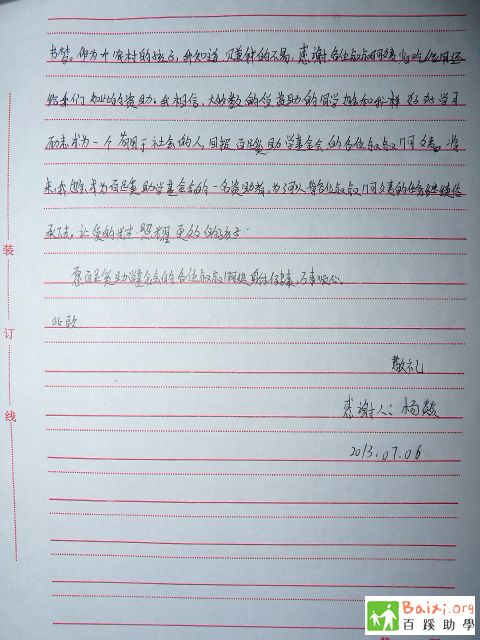 书费。作为一个农村的孩子，我知道赚钱的不易，感谢各位叔叔阿姨
给我们如此的资助。我相信，大多数的受资助的同学都会和我一样好好学习
励志成为一个有用于社会的人，回报百蹊助学基金会的各位叔叔阿姨。将
来，我也成为百蹊助学基金会的一名资助者，为了可以将各位叔叔阿姨的任务继续传
承下去，让爱的光照耀更多的孩子
愿百蹊助学基金会的各位叔叔阿姨身体健康，万事顺心。
此致
敬礼
感谢人：杨
2013.07.06
装
订
线
Baixi.org
百蹊助學